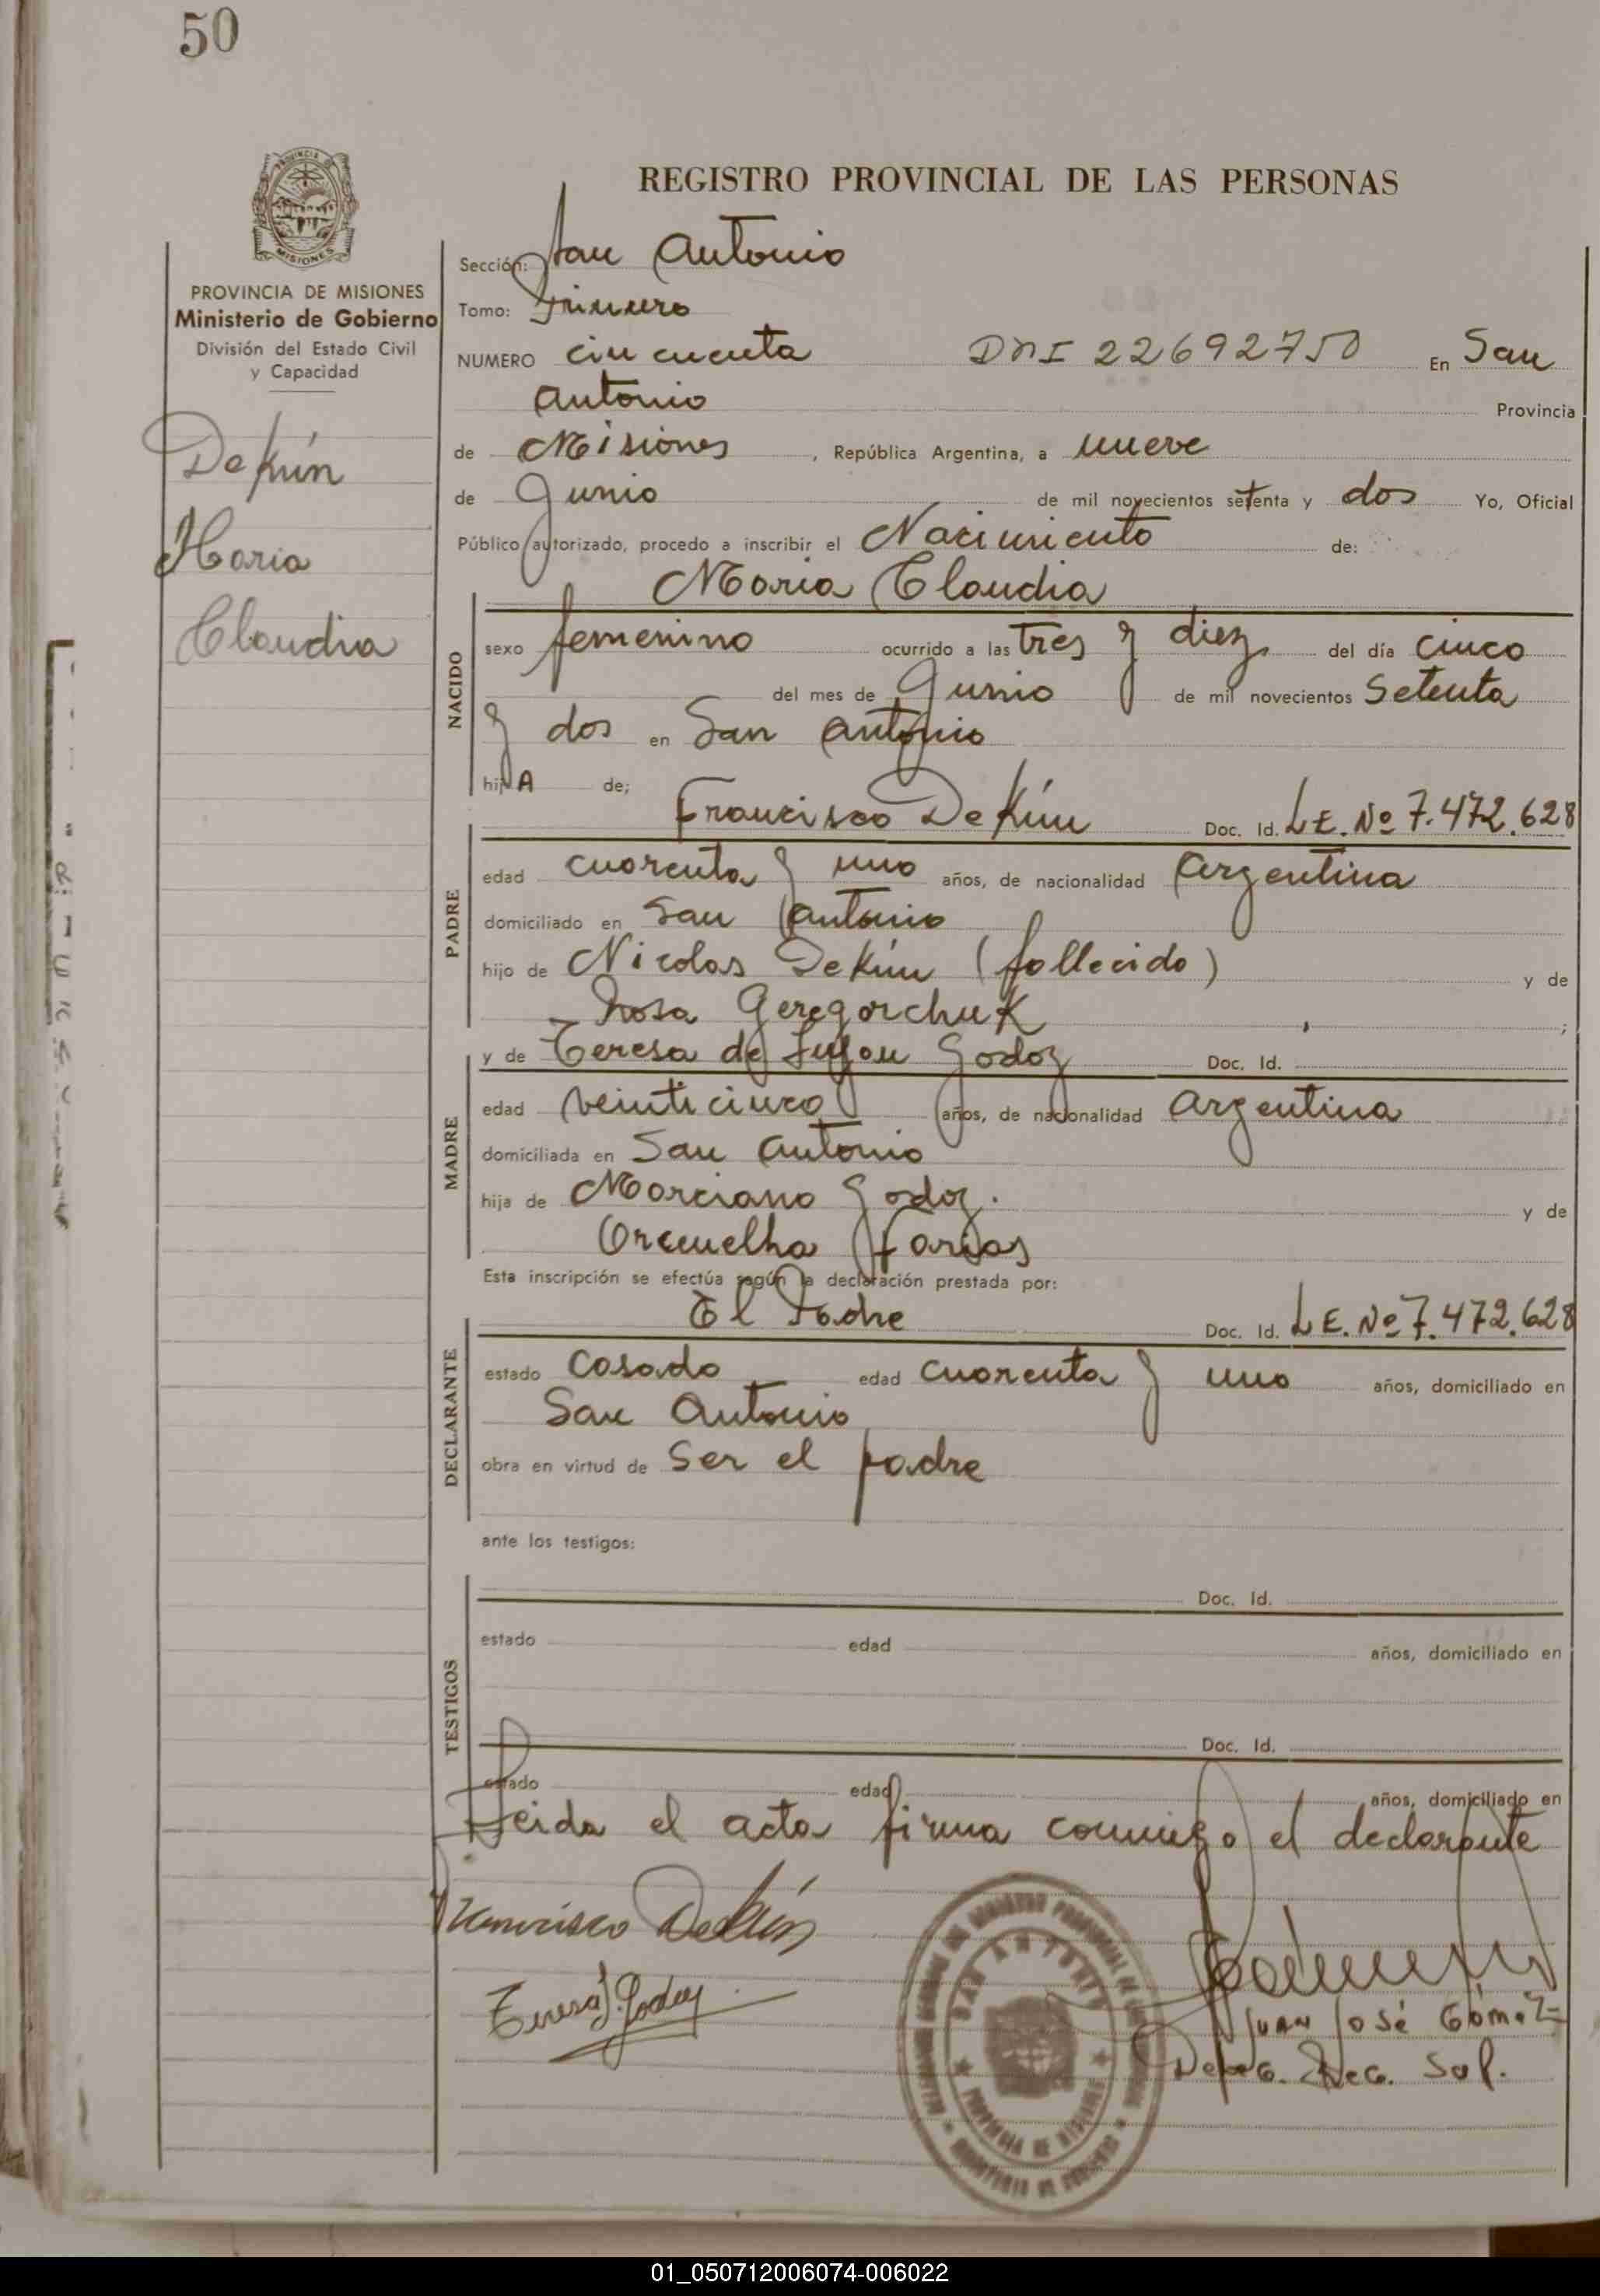 50
REGISTRO PROVINCIAL DE LAS PERSONAS
PROVINCIA DE MISIONES
Ministerio de Gobierno
División del Estado Civil
y Capacidad
Dekún
Maria
Claudia
Sección: San Antonio
Tomo: Primero
NUMERO cincuenta DNI 22692750 En San
Antonio Provincia
de Misiones, República Argentina, a nueve
de Junio de mil novecientos setenta y dos Yo, Oficial
Público autorizado, procedo a inscribir el Nacimiento de:
Maria Claudia
NACIDO
sexo femenino ocurrido a las tres y diez del día cinco
del mes de Junio de mil novecientos Setenta
y dos en San Antonio
hijA de;
Francisco Dekún Doc. Id. L.E. Nº 7.472.628
PADRE
edad cuarenta y uno años, de nacionalidad Argentina
domiciliado en San Antonio
hijo de Nicolas Dekún (fallecido) y de
Rosa Geregorchuk ;
y de Teresa de Lujan Godoy Doc. Id.
MADRE
edad veinticinco años, de nacionalidad Argentina
domiciliada en San Antonio
hija de Marciano Godoy. y de
Farias
Esta inscripción se efectúa según la declaración prestada por:
El Padre Doc. Id. L.E. Nº 7.472.628
DECLARANTE
estado Casado edad cuarenta y uno años, domiciliado en
San Antonio
obra en virtud de Ser el padre
ante los testigos:
Doc. Id.
TESTIGOS
estado edad años, domiciliado en
Doc. Id.
estado edad años, domiciliado en
Leida el acta firma conmigo el declarante
Francisco Dekún
Teresa Godoy
SAN ANTONIO
PROVINCIA DE MISIONES
MINISTERIO DE GOBIERNO
JUAN José Gómez
01_050712006074-006022